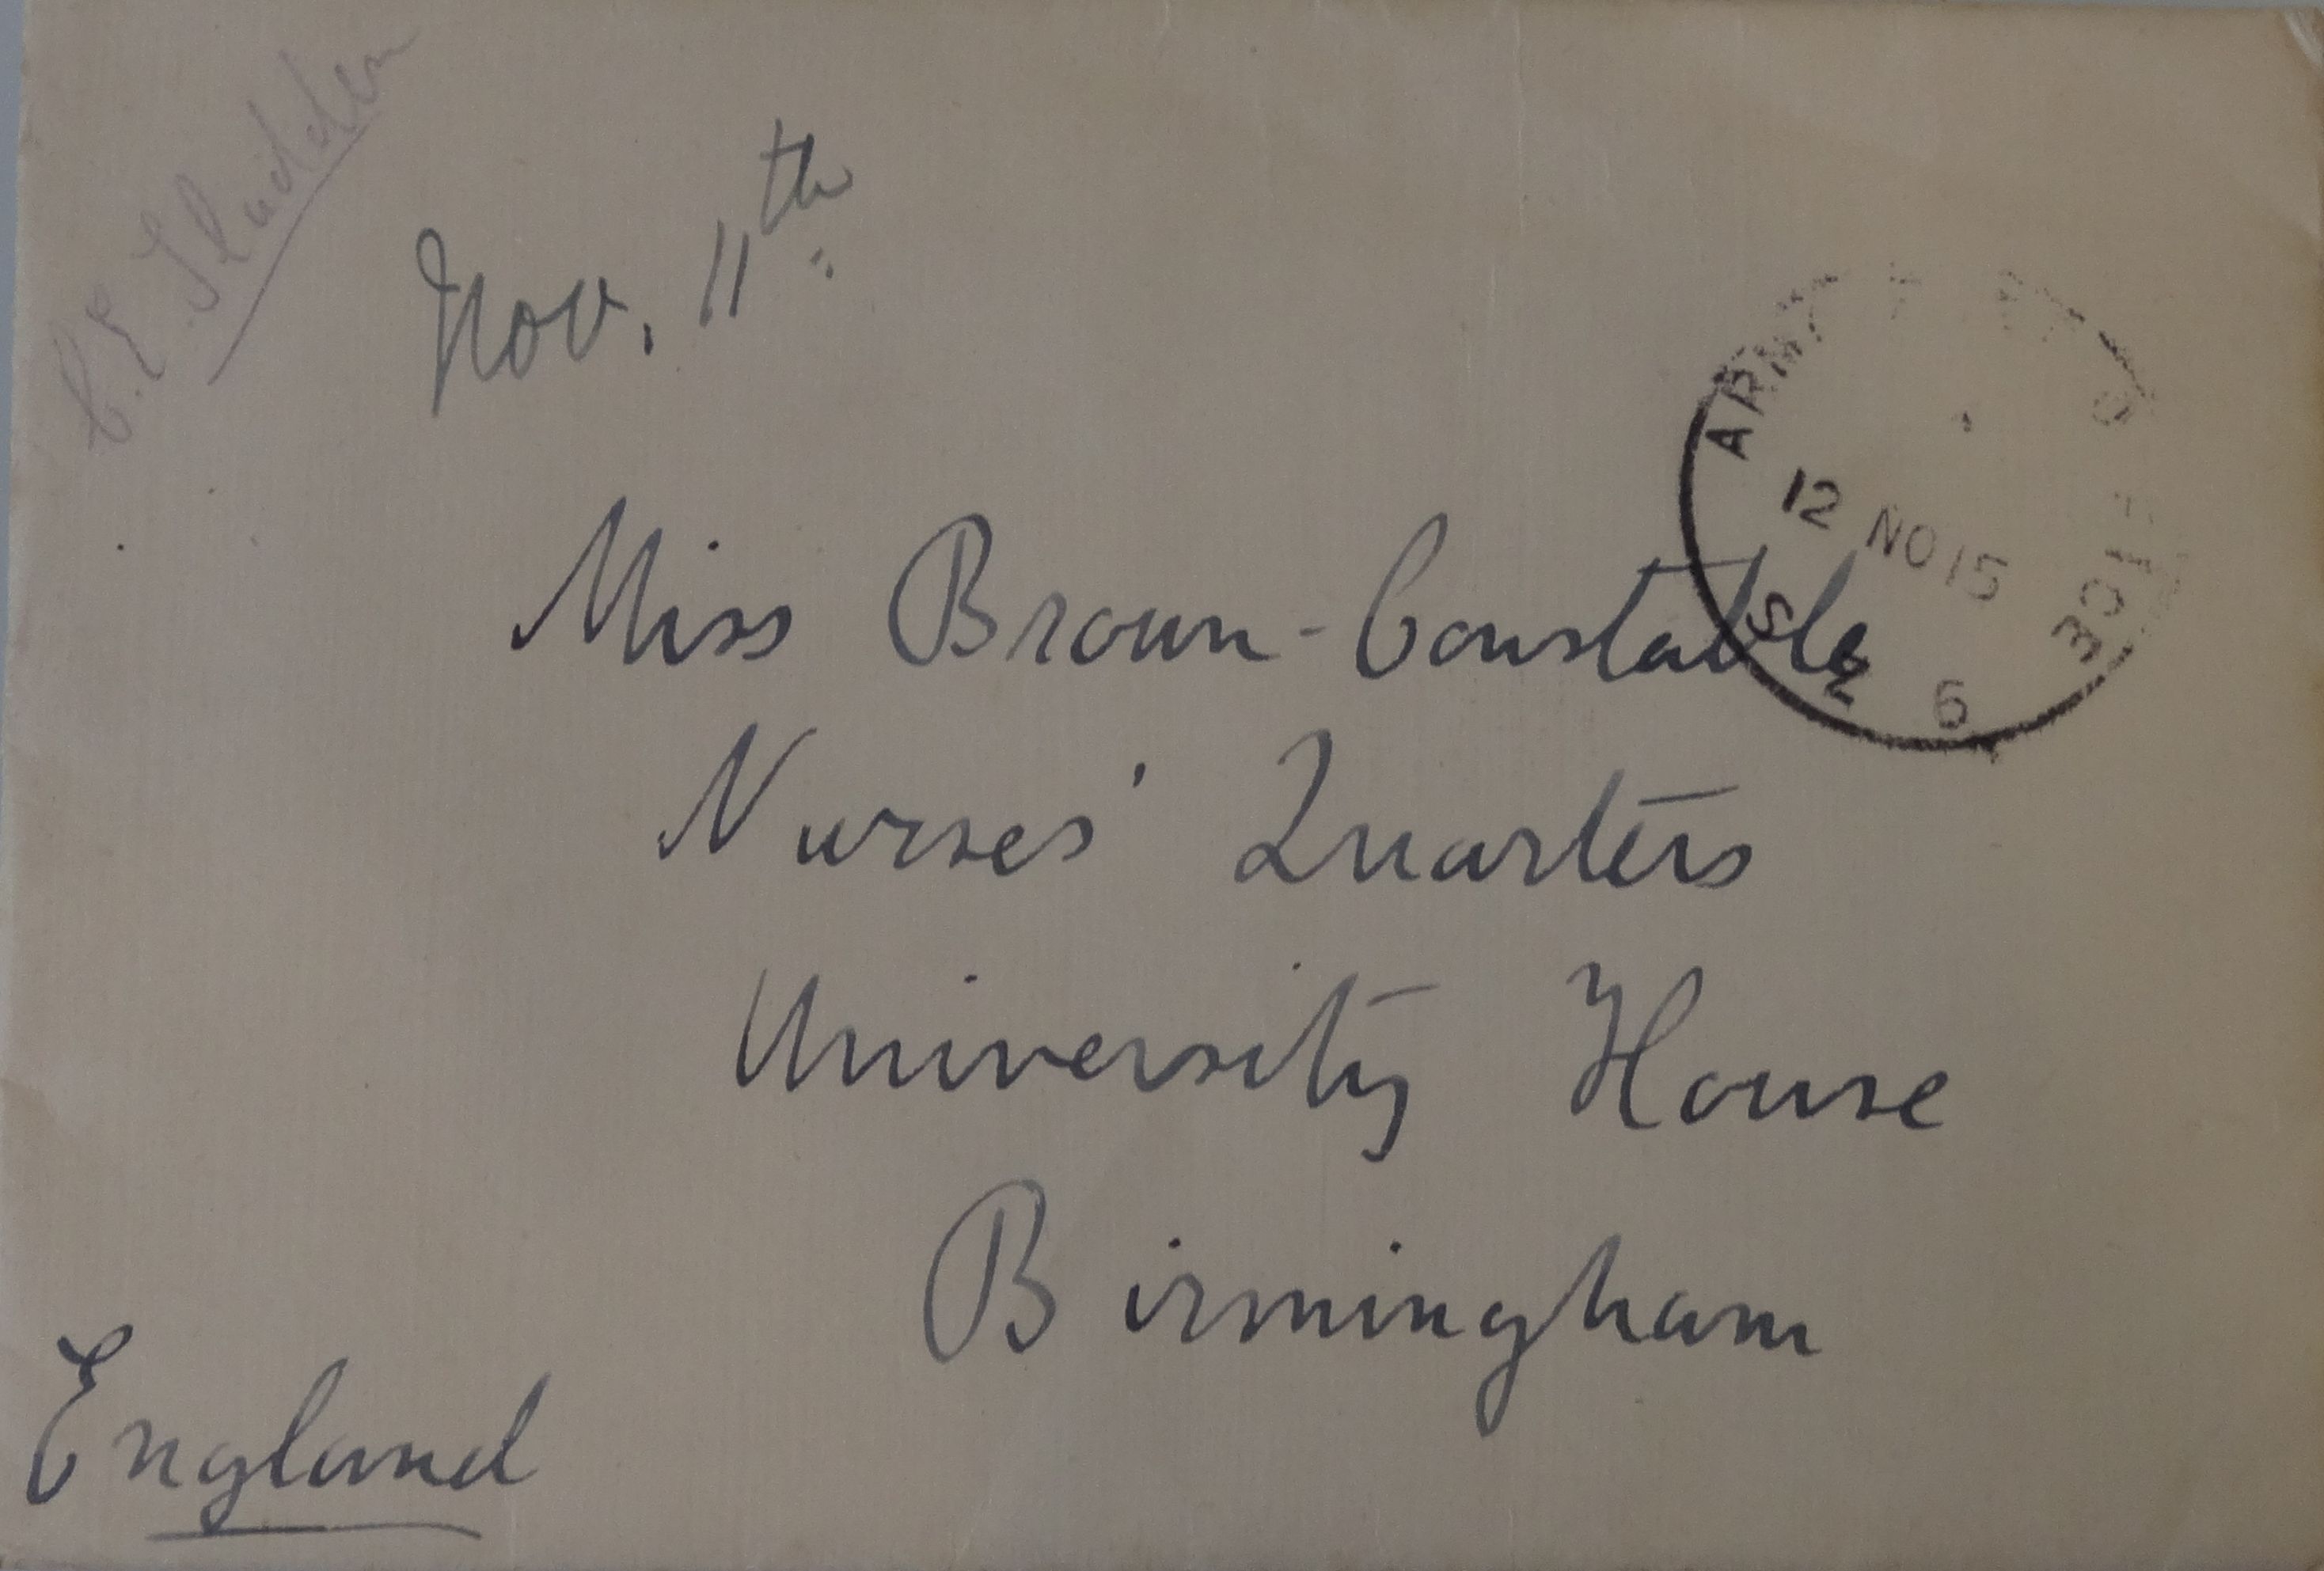 C.E. Sladden
Nov. 11th
ARMY POST OFFICE
12 NO 15
SZ 6
Miss Brown-Constable
Nurses' Quarters
University House
Birmingham
England